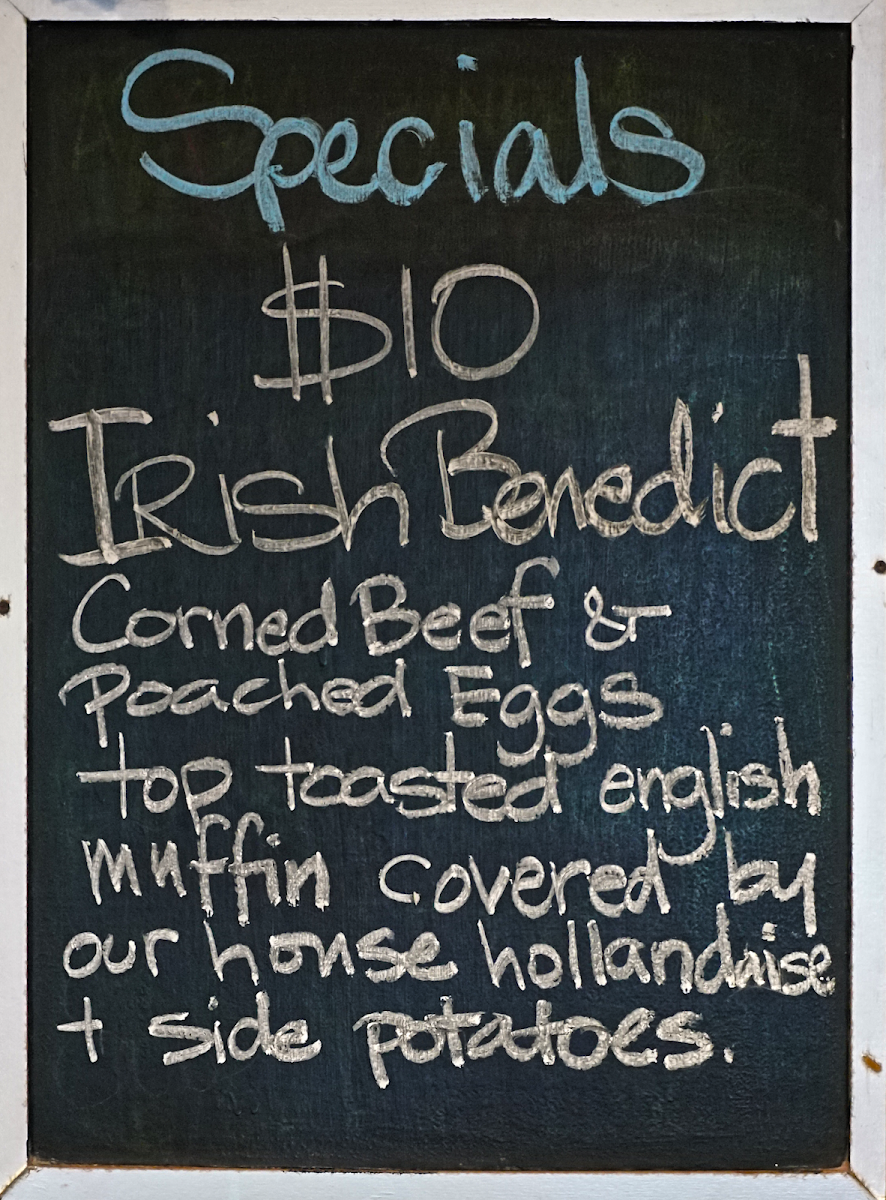 Specials
$10
Irish Benedict
Corned Beef &
Poached Eggs
top toasted english
muffin covered by
our house hollandaise
+ side potatoes.